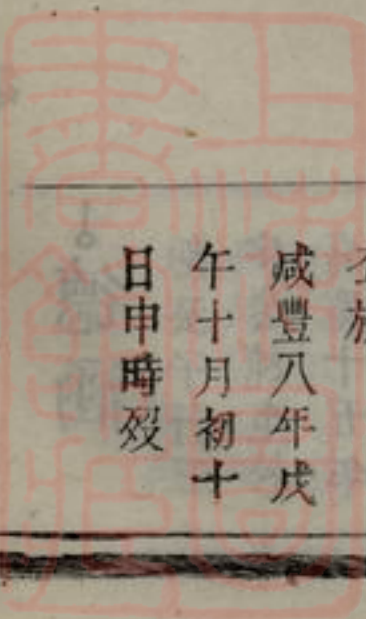 咸豐八年戊
午十月初十
日申時歿